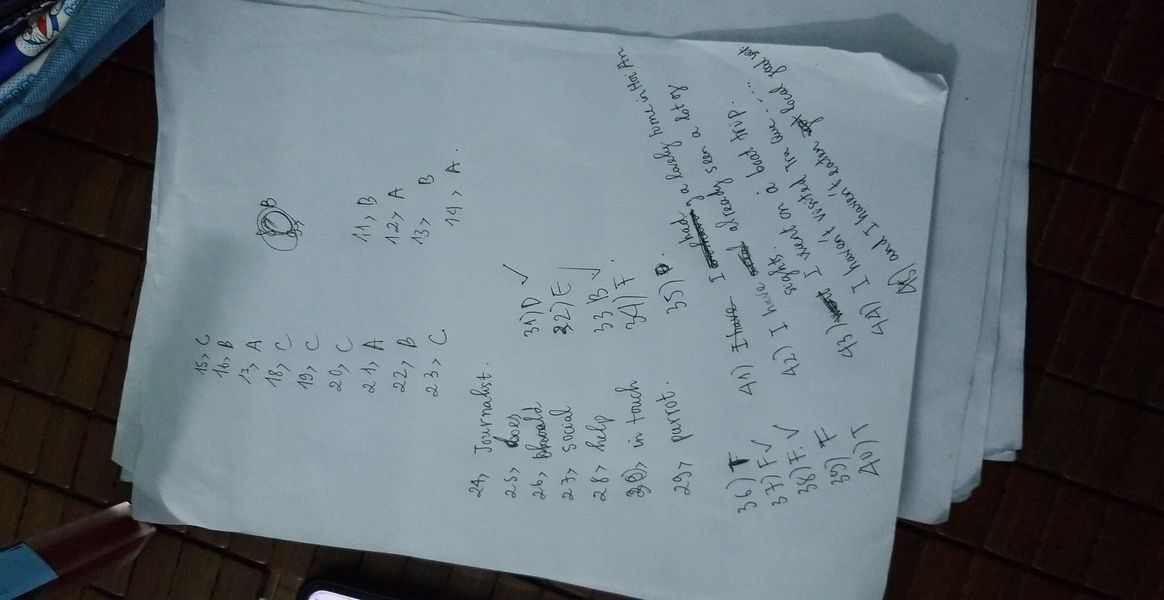 B
11> B
12> A
13> B
14> A.
15> C
16> B
17> A
18> C
19> C
20> C
21> A
22> B
23> C
24> Journalist.
25> does
26> should
27> social
28> help
30> in touch
29> parrot.
31) D ✓
32) E ✓
33 B ✓
34) F.
35)
36) F
37) F ✓
38) F. ✓
39) F
40) T
41) I had a lovely time in Hoi An
42) I have already seen a lot of
sights.
43) I went on a boat trip.
44) I haven't visited Tra Que ......
45) and I haven't eaten local food yet.